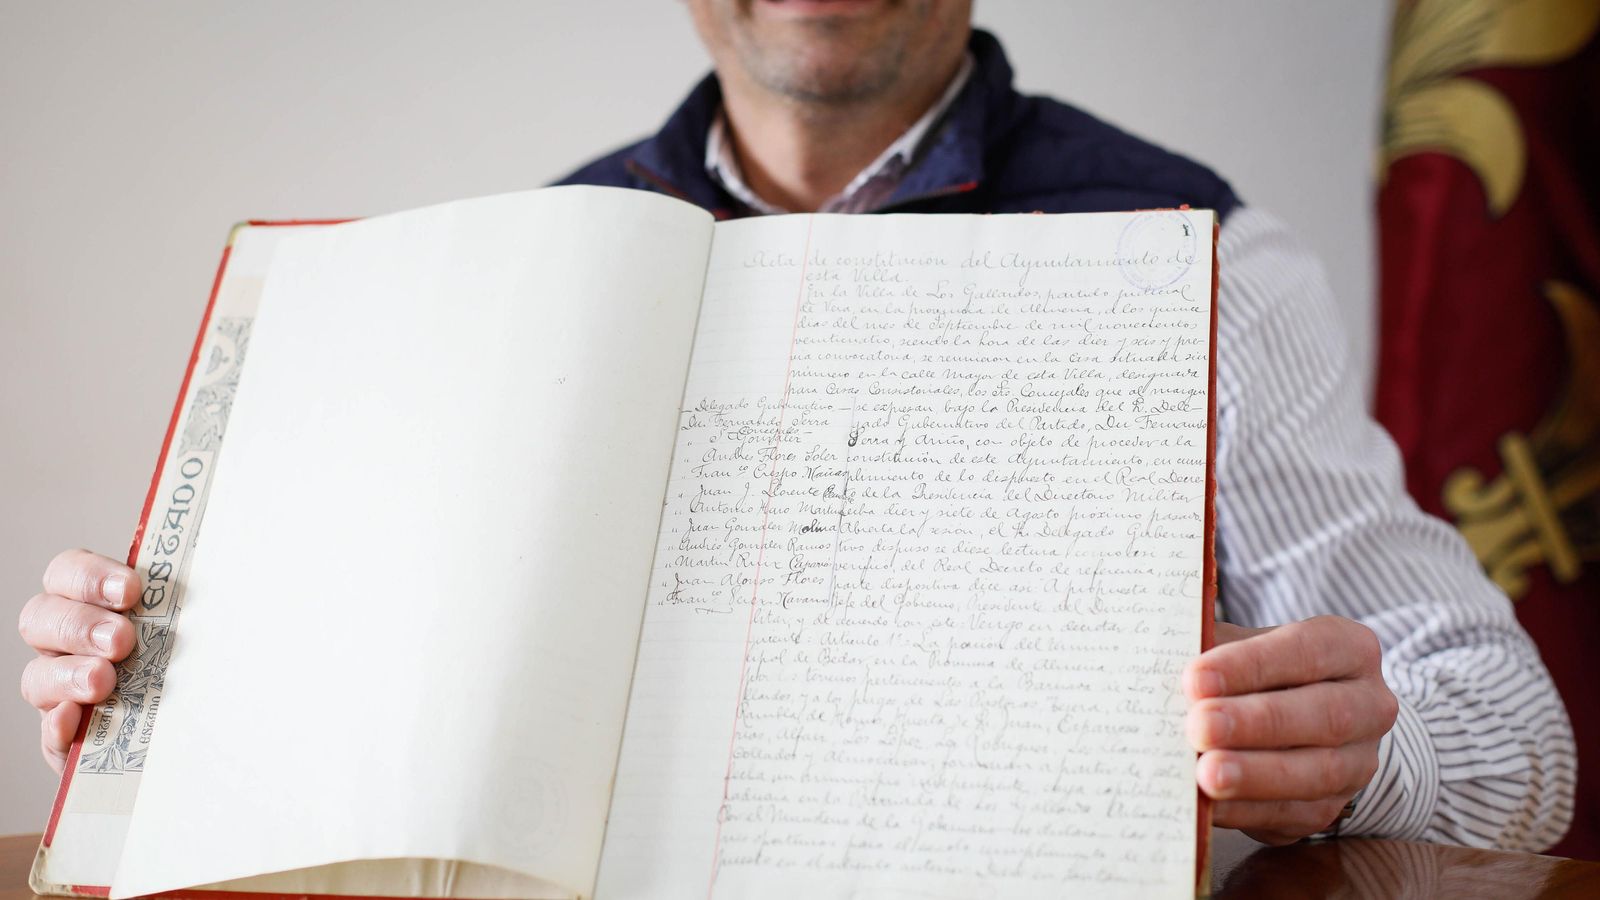 ESTADO
1
Acta de constitución del Ayuntamiento de
esta Villa.
En la Villa de Los Gallardos, partido judicial
de Vera, en la provincia de Almería, a los quince
dias del mes de Septiembre de mil novecientos
veinticuatro, siendo la hora de las diez y seis y pre-
via convocatoria, se reunieron en la Casa situada sin
número en la calle Mayor de esta Villa, designada
para Casas Consistoriales, los Srs. Concejales que al margen
Delegado Gubernativo — se expresan bajo la Presidencia del Sr. Dele-
Dn. Fernando Serra gado Gubernativo del Partido, Dn Fernando
Concejales
" J. Gonzalez Serra y Ariño, con objeto de proceder a la
" Andres Flores Soler constitución de este Ayuntamiento, en cum-
" Franco Crespo Mañas plimiento de lo dispuesto en el Real Decre-
" Juan J. Llorente to de la Presidencia del Directorio Militar
" Antonio Haro Martinez fecha diez y siete de Agosto próximo pasado.
" Juan Gonzalez Molina Abierta la sesión, el Sr. Delegado Guberna-
" Andrés Gonzalez Ramos tivo dispuso se diese lectura, como asi se
" Martin Ruiz Caparrós verificó, del Real Decreto de referencia, cuya
" Juan Alonso Flores parte dispositiva dice asi: A propuesta del
" Franco Perez Navarro Jefe del Gobierno, Presidente del Directorio
litar, y de acuerdo con este: Vengo en decretar lo si-
guiente: Articulo 1º: La porción del termino muni-
cipal de Bédar, en la Provincia de Almeria, constituida
por los terrenos pertenecientes a la Barriada de Los Ga-
llardos, y a los pagos de Las Pastoras,
Rambla de Honor, Huerta de S. Juan,
Alfaix, Los Lópes, La Rodriguez, Los Llanos
Collados y Almocaizar, formarán a partir de esta
fecha un municipio independiente, cuya capitalidad
radicará en la Barriada de Los Gallardos.
Por el Ministerio de la Gobernación se dictarán las
oportunas para el exacto cumplimiento de lo
puesto en el articulo anterior. Dado en